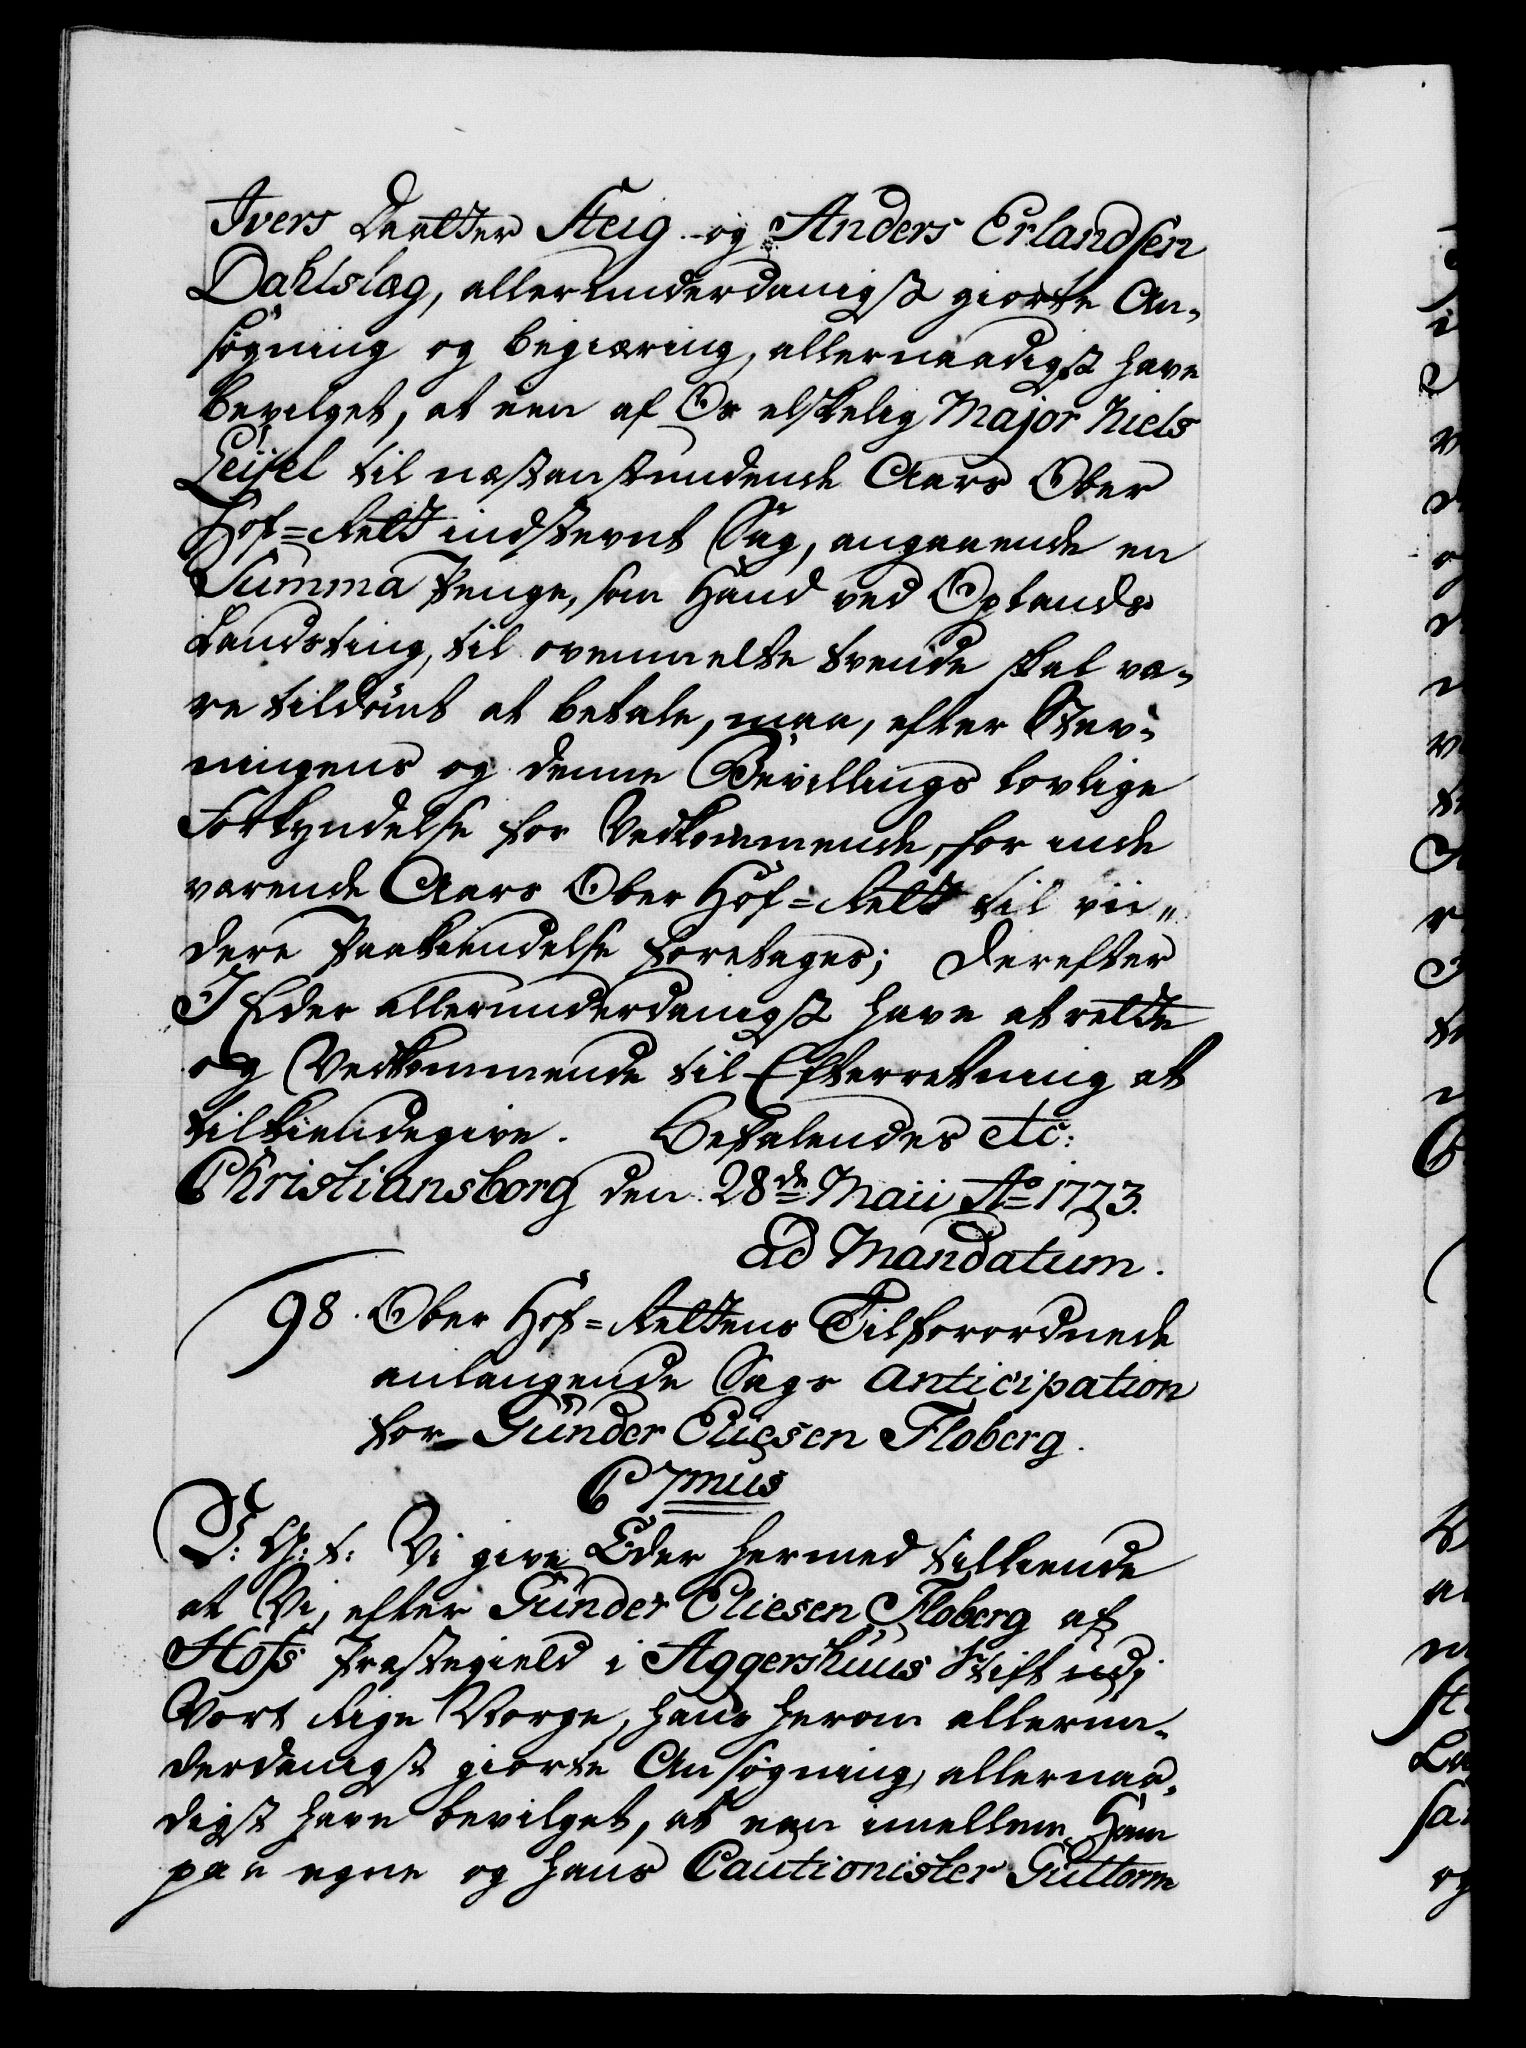 Ivers Daatter Steig og Anders Erlandsen
Dahlslæg, allerunderdanigst giorte An-
søgning og begiæring, allernaadigst have
bevilget, at een af Os elskelig Major Niels
til næstanstundende Aars Ober
Hof=Rett indstevnt Sag, angaaende en
Summa Penge, som Hand ved Oplands
Landsting, til ovenmelte tvende skal væ-
re tildømt at betale, maa, efter Stev-
ningens og denne Bevillings lovlige
Forkyndelse for Vedkommende, for inde
værende Aars Ober Hof=Rett til vii-
dere Paakiendelse foretages; Derefter
I Eder allerunderdanigst have at rette
og Vedkommende til Efterretning at
tilkiendegive. Befalendes etc:
Christiansborg den 28de Maii Ao 1773.
Ad Mandatum.
98. Ober Hof=Rettens Tilforordnede
anlangende Sags Anticipation
for Gunder Eliesen Floberg.
C 7mus
V: G: t: Vi give Eder hermed tilkiende
at Vi, efter Gunder Eliesen Floberg af
Hofs Præstegield i Aggershuus Stift udj
Vort Rige Norge, hans herom allerun-
derdanigst giorte Ansøgning, allernaa-
digst have bevilget, at een imellem Ham
paa egne og hans Cautionister Guttorm